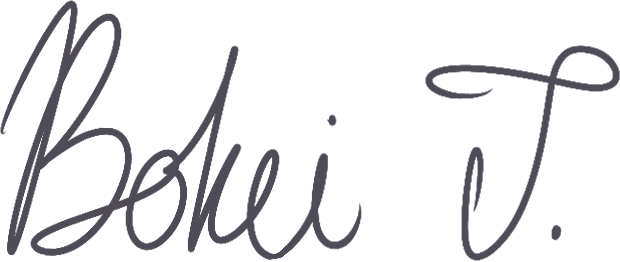 Bokei T.